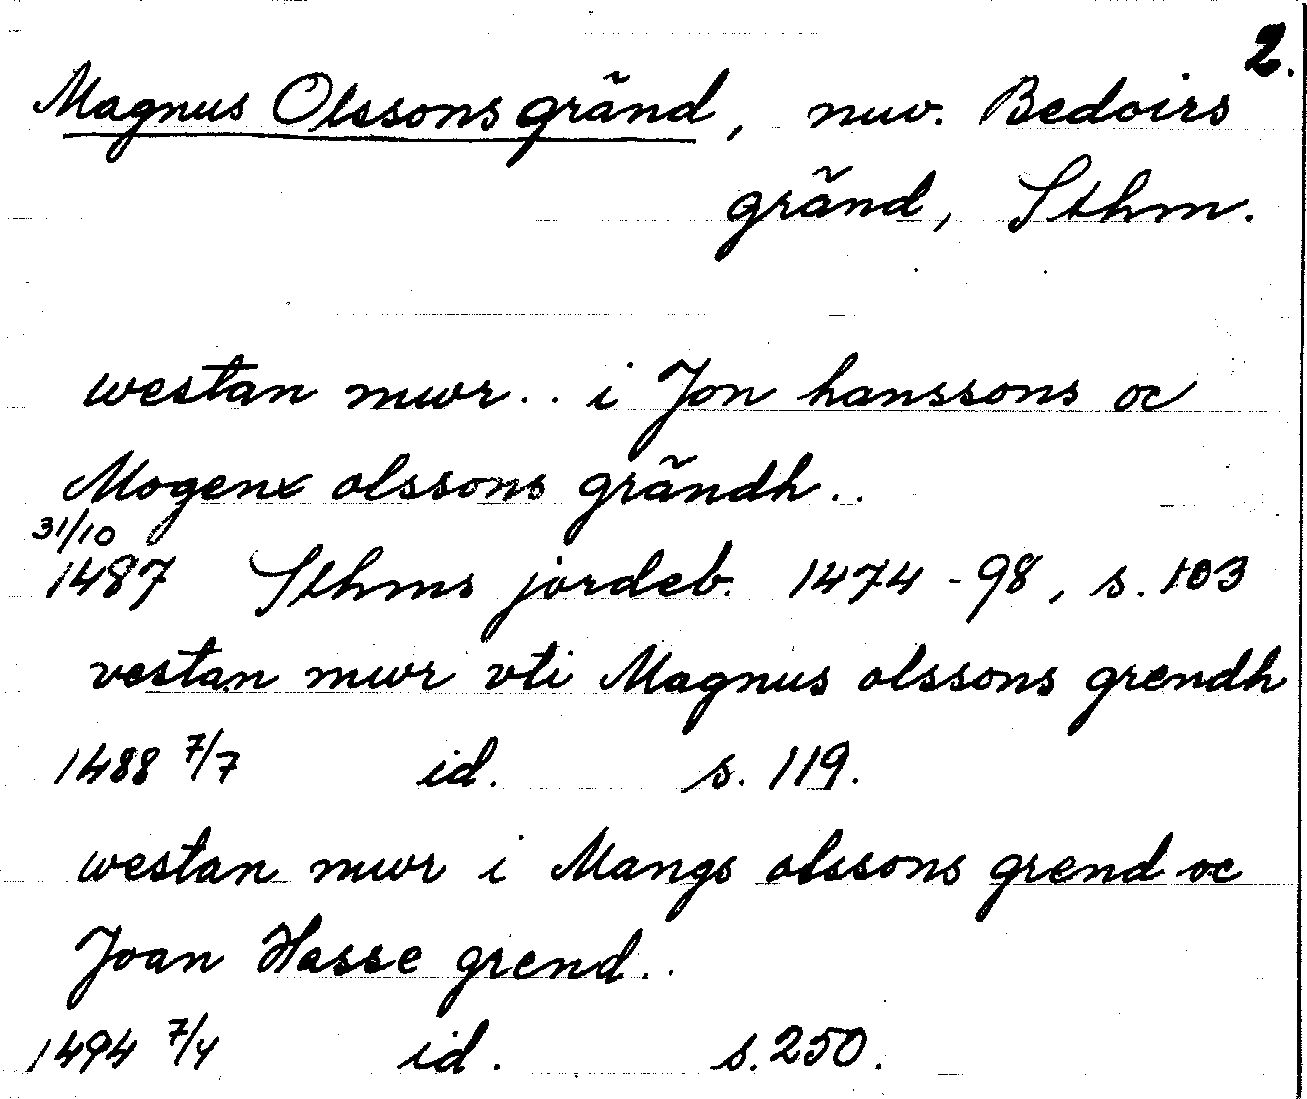 2.
Magnus Olssons gränd, nuv. Bedoirs
gränd, Sthm.
westan mwr.. i Jon hanssons oc
Mogenx olssons grändh..
31/10
1487 Sthms jordeb. 1474-98, s. 103
vestan mwr vti Magnus olssons grendh
1488 7/7 id. s. 119.
westan mwr i Mangs olssons grend oc
Joan Hasse grend..
1494 7/4 id. s. 250.